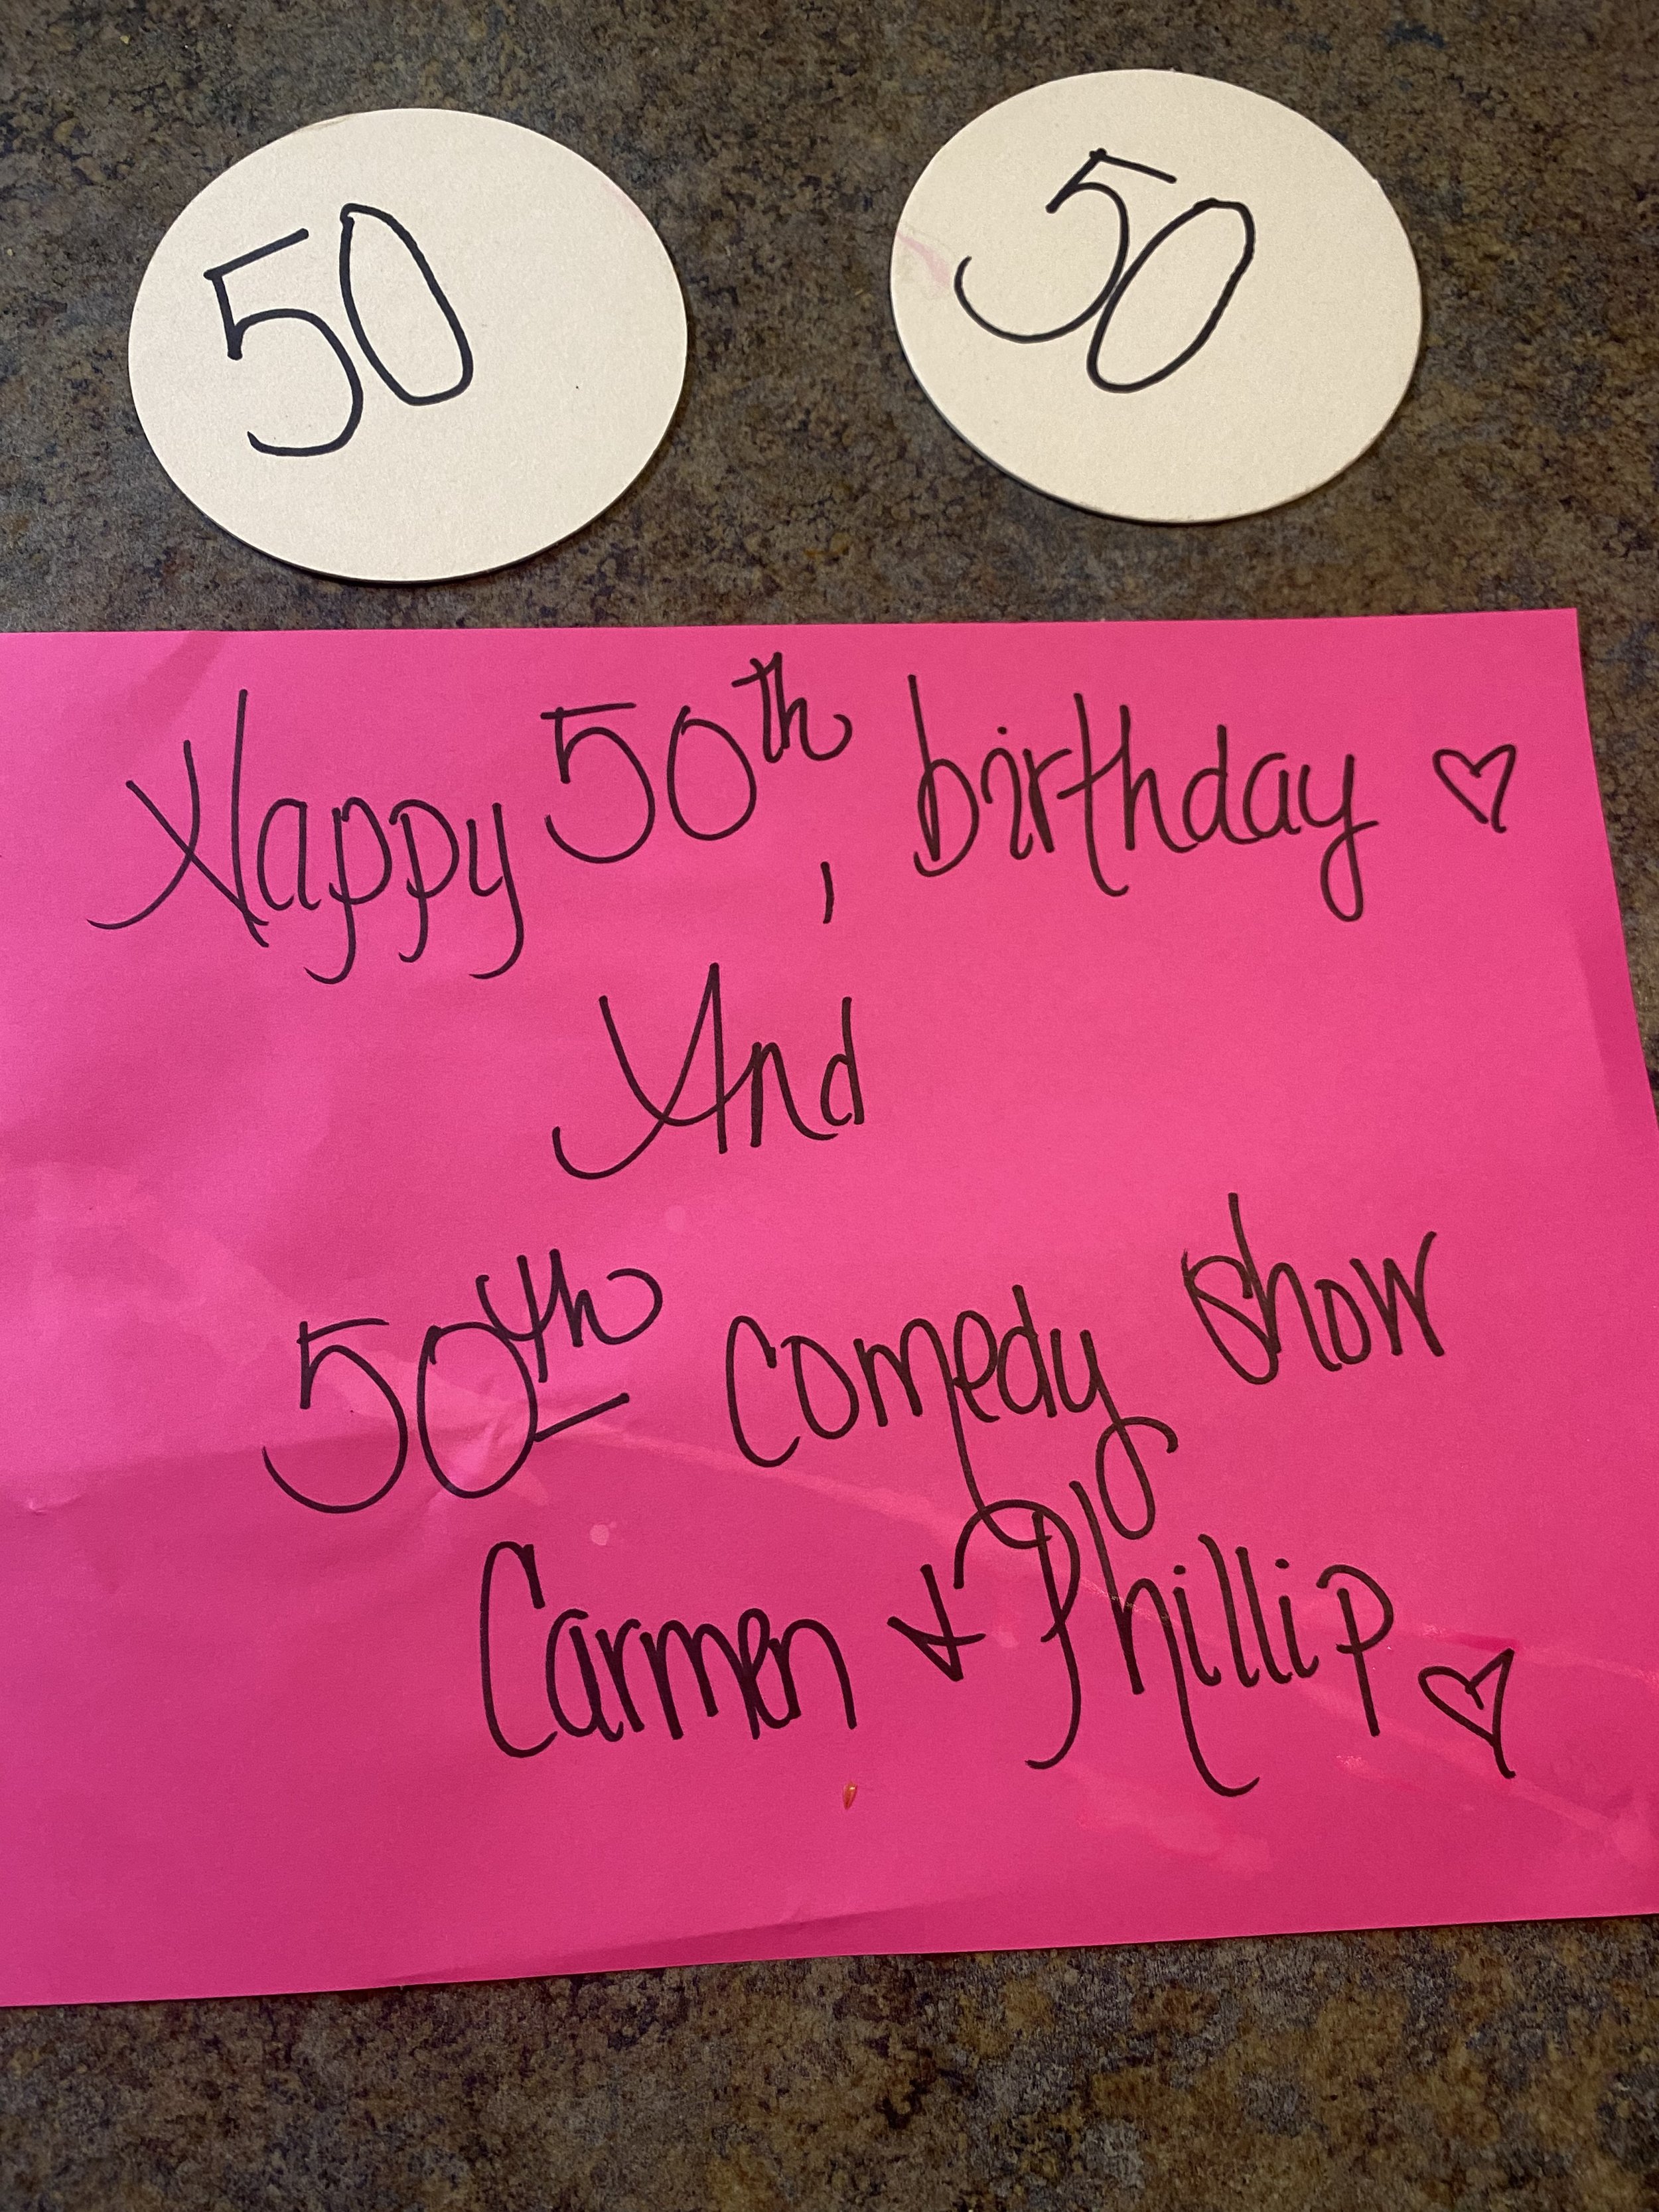 50
50
Happy 50th, birthday ♡
And
50th comedy show
Carmen + Phillip ♡